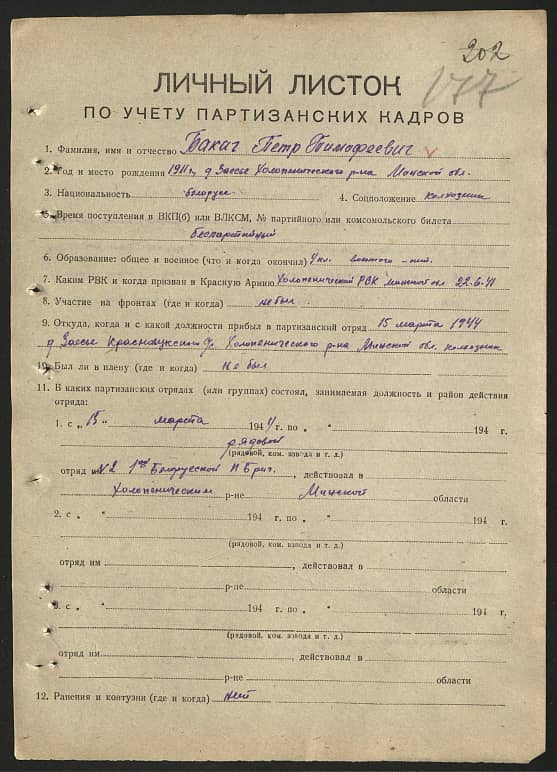 202
177
ЛИЧНЫЙ ЛИСТОК
ПО УЧЕТУ ПАРТИЗАНСКИХ КАДРОВ
1. Фамилия, имя и отчество Бакач Петр Тимофеевич
2. Год и место рождения 1911 г. д Заесье Холопенического р-на Минской обл.
3. Национальность белорус 4. Соцположение колхозник
5. Время поступления в ВКП(б) или ВЛКСМ, № партийного или комсомольского билета
беспартийный
6. Образование: общее и военное (что и когда окончил) 4 кл. военного - нит.
7. Каким РВК и когда призван в Красную Армию Холопенический РВК минской обл 22.6.41
8. Участие на фронтах (где и когда) не был
9. Откуда, когда и с какой должности прибыл в партизанский отряд 15 марта 1944
д Заесье Холопенического р-на Минской обл. колхозник
10. Был ли в плену (где и когда) не был
11. В каких партизанских отрядах (или группах) состоял, занимаемая должность и район действия
отряда:
1. с „ 15 " марта 1944 г. по „ " 194 г.
рядовой
(рядовой, ком. взвода и т. д.)
отряд им №2 1ой Белорусской П Бриг. , действовал в
Холопеническим р-не Минской области
2. с „ " 194 г. по „ " 194 г.
(рядовой, ком. взвода и т. д.)
отряд им , действовал в
р-не области
3. с „ " 194 г. по „ " 194 г.
(рядовой, ком. взвода и т. д.)
отряд им , действовал в
р-не области
12. Ранения и контузии (где и когда) нет